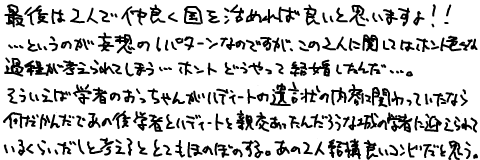 最後は2人で仲良く国を治めれば良いと思いますよ!!
…というのが妄想の1パターンなのですが、この2人に関してはホント色々な
過程が考えられてしまう…ホントどうやって結婚したんだ…。
そういえば学者のおっちゃんがハディートの遺言状の内容に関わっていたなら
何だかんだであの後学者とハディートと親交あったんだろうな城の学者に迎えられて
いるくらいだしと考えるととてもほのぼのする。あの2人結構良いコンビだと思う。